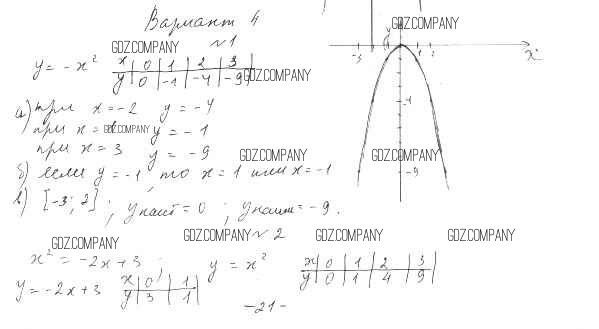 Вариант 4
GDZ.COMPANY GDZ.COMPANY
№1
y = -x²
x | 0 | 1 | 2 | 3
y | 0 | -1 | -4 | -9
GDZ.COMPANY
а) при x = -2 y = -4
GDZ.COMPANY
при x = y = -1
при x = 3 y = -9
GDZ.COMPANY GDZ.COMPANY
б) если y = -1, то x = 1 или x = -1
в) [-3; 2]; yнаиб = 0; yнаим = -9.
-3 2 x
-4
-9
GDZ.COMPANY GDZ.COMPANY №2 GDZ.COMPANY GDZ.COMPANY
x² = -2x + 3;
y = x²
x | 0 | 1 | 2 | 3
y | 0 | 1 | 4 | 9
y = -2x + 3
x | 0 | 1
y | 3 | 1
-21-